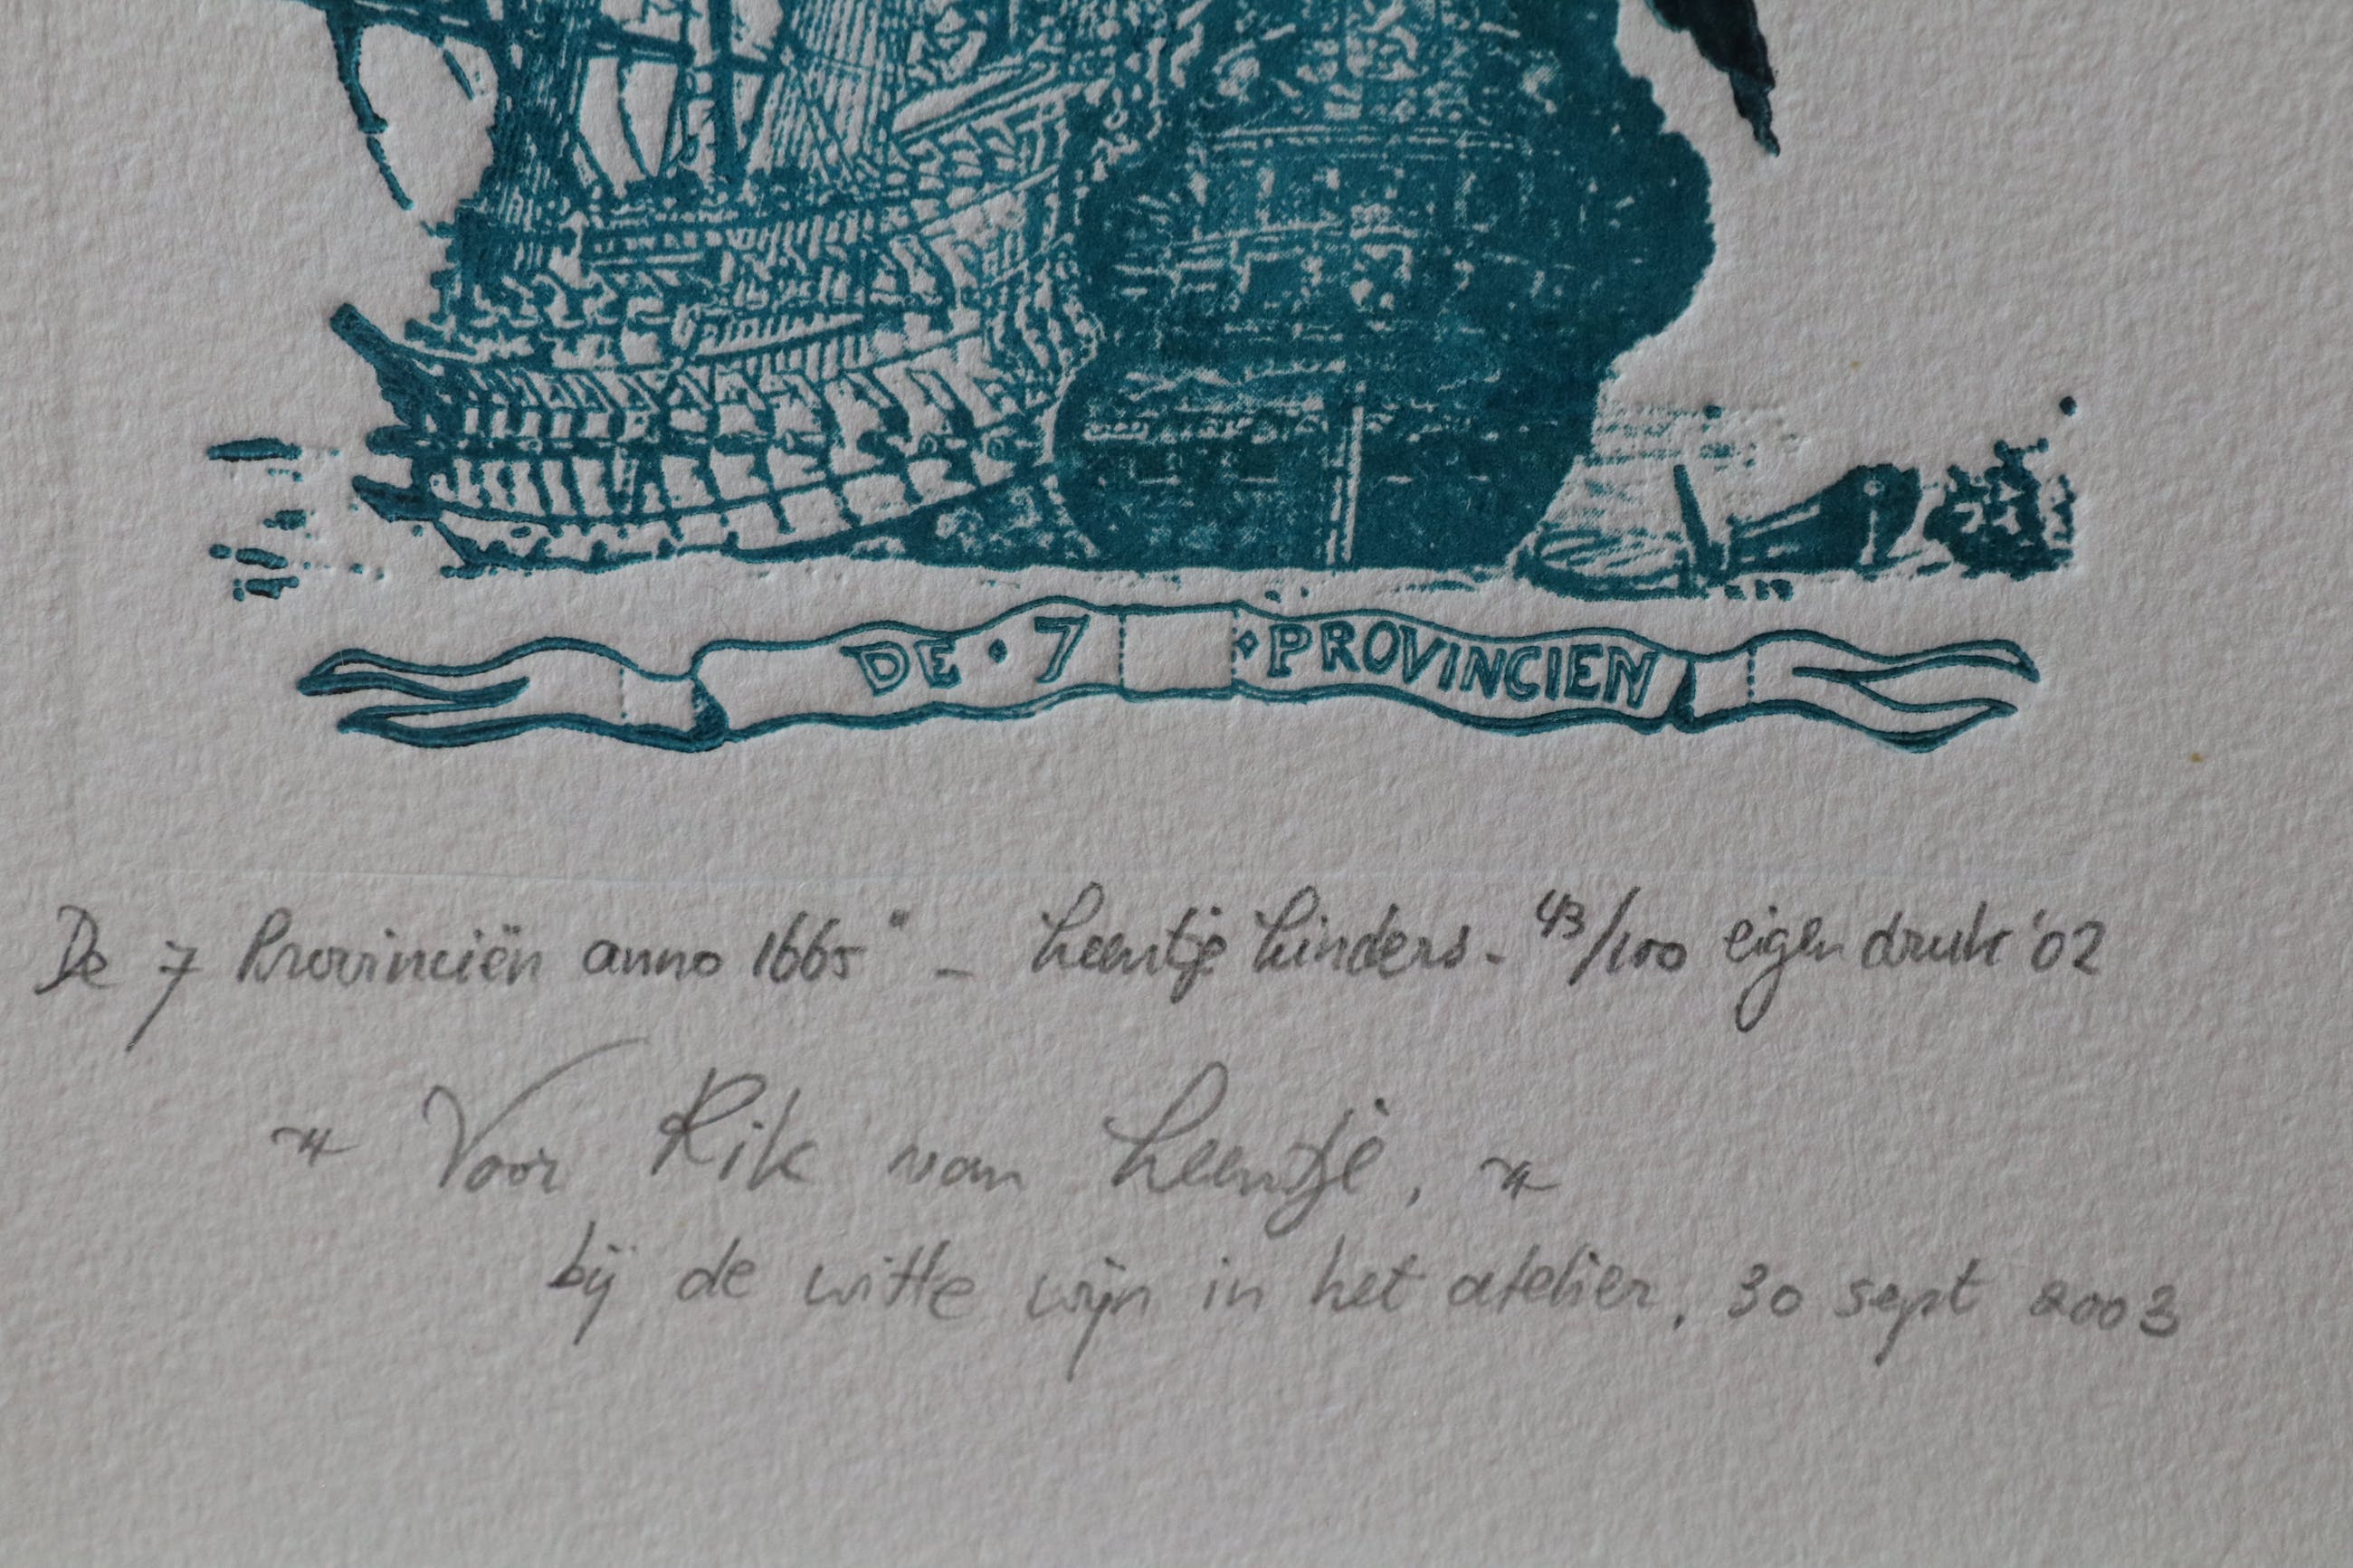 DE · 7 · PROVINCIEN
De 7 Provinciën anno 1665" - Leentje Linders. 43/100 eigen druk '02
Voor Rik van Leentje,
bij de witte wijn in het atelier, 30 sept 2003